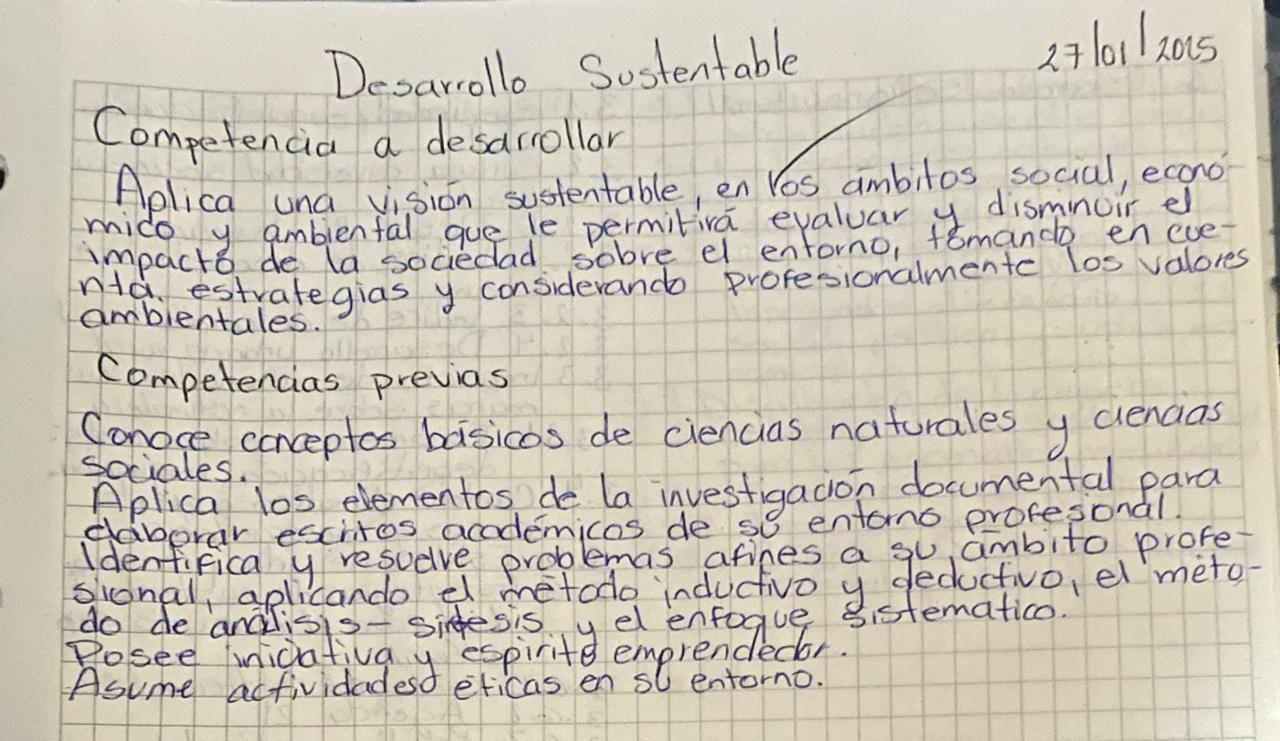 Desarrollo Sustentable 27/01/2025
Competencia a desarrollar
Aplica una visión sustentable, en los ámbitos social, econó-
mico y ambiental que le permitirá evaluar y disminuir el
impacto de la sociedad sobre el entorno, tomando en cue-
nta. estrategias y considerando profesionalmente los valores
ambientales.
Competencias previas
Conoce conceptos básicos de ciencias naturales y ciencias
sociales.
Aplica los elementos de la investigación documental para
elaborar escritos académicos de su entorno profesional.
Identifica y resuelve problemas afines a su ámbito profe-
sional, aplicando el método inductivo y deductivo, el méto-
do de análisis - síntesis y el enfoque sistematico.
Posee iniciativa y espiritu emprendedor.
Asume actividades éticas en su entorno.